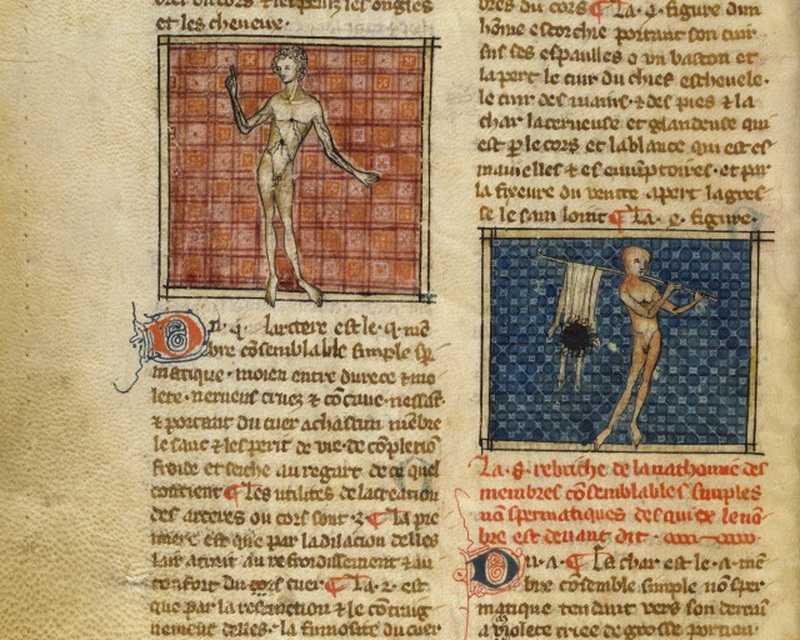 et les cheveux.
En .q. lartere est le .q. mē
bre cōsemblable simple sp̄
matique. moien entre durece ⁊ mo
lete. nerueus cruez ⁊ cōcaue. nessāt
⁊ portant du cuer a chascun mēbre
le sanc ⁊ lesperit de vie. de cōplexiō
froide et seiche au regart de ce quel
contient ¶ Les utilités de la creation
des arteres ou cors sont .2. ¶ la pre
miere est que par la dilacion delles
lair attrait au refroidissement ⁊ au
confort du cuer ¶ La .2. est
que par la ⁊ le
nement delles. la fumosité du cuer
bres du cors ¶ La .q. figure dun
hōme escorchie portant son cuir
sus ses espaulles o un baston et
la pert le cuir du chief eschevele.
le cuir des mains. ⁊ des pies ⁊ la
char lacerteuse et glandeuse qui
est p̱ le cors et la blance qui est es
mamelles ⁊ es emūptoires. et par
la fixeure du ventre apert la gres
se le sain loint ¶ La .e. figure.
La .8. rebriche de la nathomie des
membres cōsemblables simples
nō spermatiques desquiex le nō
bre est devant dit.
Du .a. ¶ La char est le .a. mē
bre cōsemble simple nō sper
matique tendant vers son
a violete criee de grosse portion